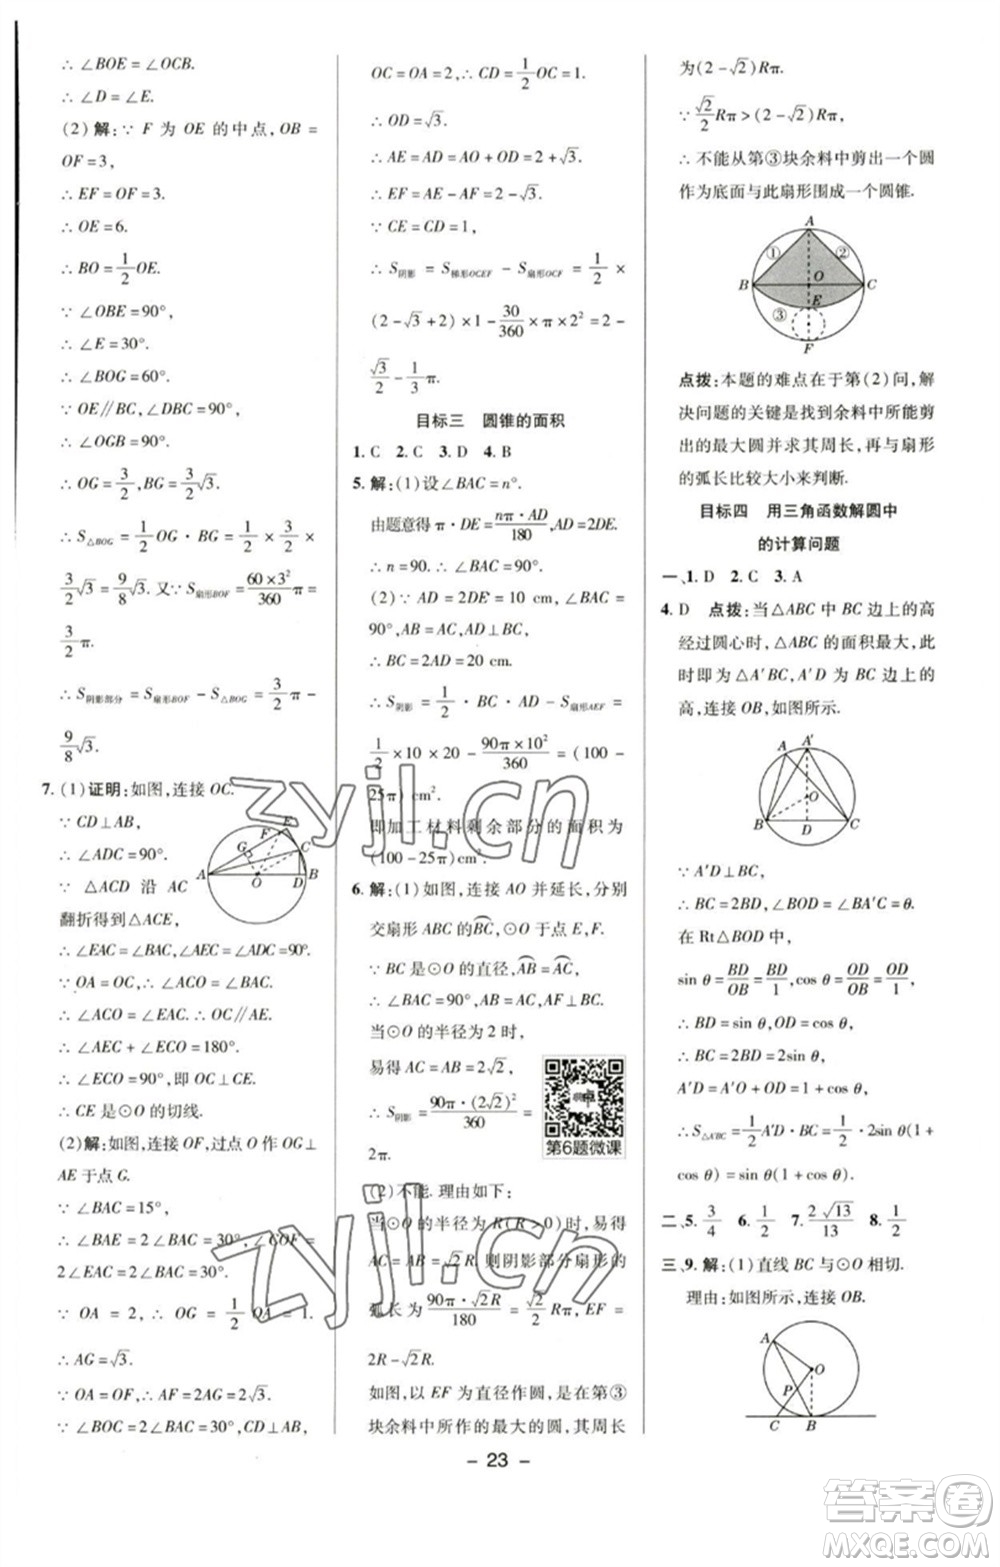 ∴ ∠BOE = ∠OCB.
∴ ∠D = ∠E.
(2) 解: ∵ F 为 OE 的中点, OB =
OF = 3,
∴ EF = OF = 3.
∴ OE = 6.
∴ BO = 1/2 OE.
∵ ∠OBE = 90°,
∴ ∠E = 30°.
∴ ∠BOG = 60°.
∵ OE∥BC, ∠DBC = 90°,
∴ ∠OGB = 90°.
∴ OG = 3/2, BG = 3/2 √3.
∴ S△BOG = 1/2 OG · BG = 1/2 × 3/2 ×
3/2 √3 = 9/8 √3. 又∵ S扇形BOF = 60π×3²/360 =
3/2 π.
∴ S阴影部分 = S扇形BOF − S△BOG = 3/2 π −
9/8 √3.
7. (1) 证明: 如图, 连接 OC.
∵ CD⊥AB,
∴ ∠ADC = 90°.
∵ △ACD 沿 AC
翻折得到△ACE,
∴ ∠EAC = ∠BAC, ∠AEC = ∠ADC = 90°.
∵ OA = OC, ∴ ∠ACO = ∠BAC.
∴ ∠ACO = ∠EAC. ∴ OC∥AE.
∴ ∠AEC + ∠ECO = 180°.
∴ ∠ECO = 90°, 即 OC⊥CE.
∴ CE 是⊙O 的切线.
(2) 解: 如图, 连接 OF, 过点 O 作 OG⊥
AE 于点 G.
∵ ∠BAC = 15°,
∴ ∠BAE = 2∠BAC = 30°, ∠COF =
2∠EAC = 2∠BAC = 30°.
∵ OA = 2, ∴ OG = 1/2 OA = 1.
∴ AG = √3.
∵ OA = OF, ∴ AF = 2AG = 2√3.
∵ ∠BOC = 2∠BAC = 30°, CD⊥AB,
G F E C A O D B
OC = OA = 2, ∴ CD = 1/2 OC = 1.
∴ OD = √3.
∴ AE = AD = AO + OD = 2 + √3.
∴ EF = AE − AF = 2 − √3.
∵ CE = CD = 1,
∴ S阴影 = S梯形OCEF − S扇形OCF = 1/2 ×
(2 − √3 + 2) × 1 − 30/360 × π × 2² = 2 −
√3/2 − 1/3 π.
目标三 圆锥的面积
1. C 2. C 3. D 4. B
5. 解: (1) 设∠BAC = n°.
由题意得 π · DE = nπ · AD/180, AD = 2DE,
∴ n = 90. ∴ ∠BAC = 90°.
(2) ∵ AD = 2DE = 10 cm, ∠BAC =
90°, AB = AC, AD⊥BC,
∴ BC = 2AD = 20 cm.
∴ S阴影 = 1/2 · BC · AD − S扇形AEF =
1/2 × 10 × 20 − 90π×10²/360 = (100 −
25π) cm².
即加工材料剩余部分的面积为
(100 − 25π) cm².
6. 解: (1) 如图, 连接 AO 并延长, 分别
交扇形 ABC 的BC, ⊙O 于点 E, F.
∵ BC 是⊙O 的直径, AB = AC,
∴ ∠BAC = 90°, AB = AC, AF⊥BC.
当⊙O 的半径为 2 时,
易得 AC = AB = 2√2,
∴ S阴影 = 90π · (2√2)²/360 =
2π.
第6题微课
(2) 不能. 理由如下:
当⊙O 的半径为 R(R > 0) 时, 易得
AC = AB = √2R. 则阴影部分扇形的
弧长为 90π · √2R/180 = √2/2 Rπ, EF =
2R − √2R.
如图, 以 EF 为直径作圆, 是在第③
块余料中所作的最大的圆, 其周长
为(2 − √2)Rπ.
∵ √2/2 Rπ > (2 − √2)Rπ,
∴ 不能从第③块余料中剪出一个圆
作为底面与此扇形围成一个圆锥.
A ① ② B O C E ③ F
点拨: 本题的难点在于第(2)问, 解
决问题的关键是找到余料中所能剪
出的最大圆并求其周长, 再与扇形
的弧长比较大小来判断.
目标四 用三角函数解圆中
的计算问题
一、1. D 2. C 3. A
4. D 点拨: 当△ABC 中 BC 边上的高
经过圆心时, △ABC 的面积最大, 此
时即为△A′BC, A′D 为 BC 边上的
高, 连接 OB, 如图所示.
A A′ O B D C
∵ A′D⊥BC,
∴ BC = 2BD, ∠BOD = ∠BA′C = θ.
在 Rt△BOD 中,
sin θ = BD/OB = BD/1, cos θ = OD/OB = OD/1,
∴ BD = sin θ, OD = cos θ.
∴ BC = 2BD = 2sin θ,
A′D = A′O + OD = 1 + cos θ.
∴ S△A′BC = 1/2 A′D · BC = 1/2 · 2sin θ(1 +
cos θ) = sin θ(1 + cos θ).
二、5. 3/4 6. 1/2 7. 2√13/13 8. 1/2
三、9. 解: (1) 直线 BC 与⊙O 相切.
理由: 如图所示, 连接 OB.
A O P C B
- 23 -
zyjl.cn
zyjl.cn
答案圈
MXQE.COM